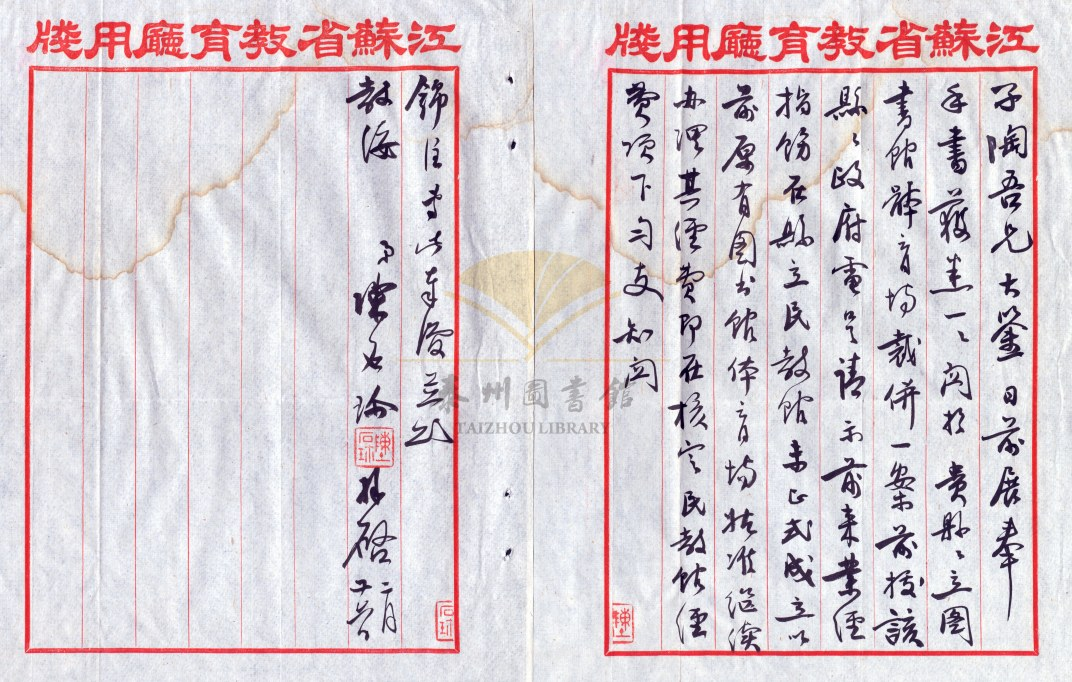 江蘇省教育廳用牋
子陶吾兄大鑒日前展奉
手書藉悉一一關於貴縣縣立圖
書館體育場裁併一案前據該
縣縣政府電呈請示前來業經
指飭在縣立民教館未正式成立以
前原有圖书館体育場姑准繼續
办理其經費即在核定民教館經
費項下勻支知関
江蘇省教育廳用牋
錦注專此奉復並頌
教绥
弟陳石珍拜啓二月十六日
泰州圖書館
TAIZHOU LIBRARY